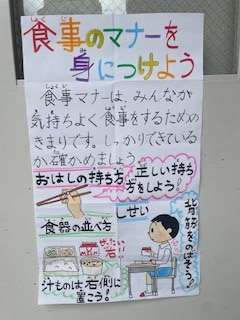 食事のマナーを
身につけよう
食事マナーは、みんなが
気持ちよく食事をするための
きまりです。しっかりできている
か確かめましょう。
おはしの持ち方
正しい持ち
方をしよう!
食器の並べ方
しせい
背筋をのばそう♪
ぜったい
右
汁ものは右側に
置こう!